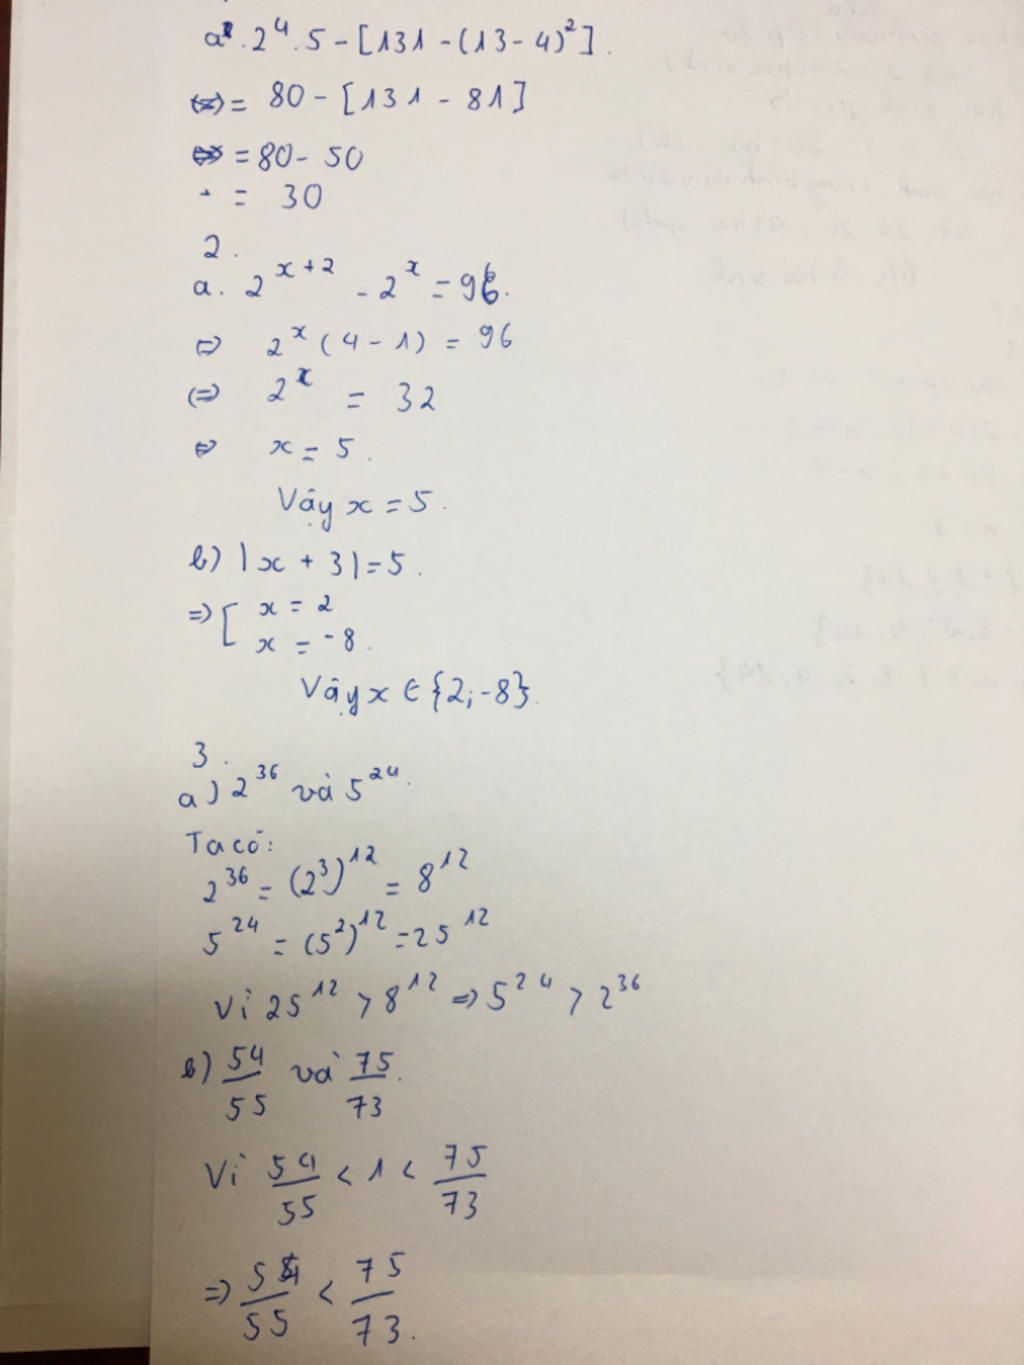 a. 2⁴.5 - [131 - (13 - 4)²].
(=) = 80 - [131 - 81]
= 80 - 50
= 30
2.
a. 2^{x+2} - 2^x = 96.
⇔ 2^x (4 - 1) = 96
⇔ 2^x = 32
⇔ x = 5.
Vậy x = 5.
b) |x + 3| = 5.
⇒ [ x = 2
x = -8.
Vậy x ∈ {2; -8}.
3.
a) 2³⁶ và 5²⁴.
Ta có:
2³⁶ = (2³)¹² = 8¹²
5²⁴ = (5²)¹² = 25¹²
Vì 25¹² > 8¹² ⇒ 5²⁴ > 2³⁶
b) 54/55 và 75/73.
Vì 54/55 < 1 < 75/73
⇒ 54/55 < 75/73.